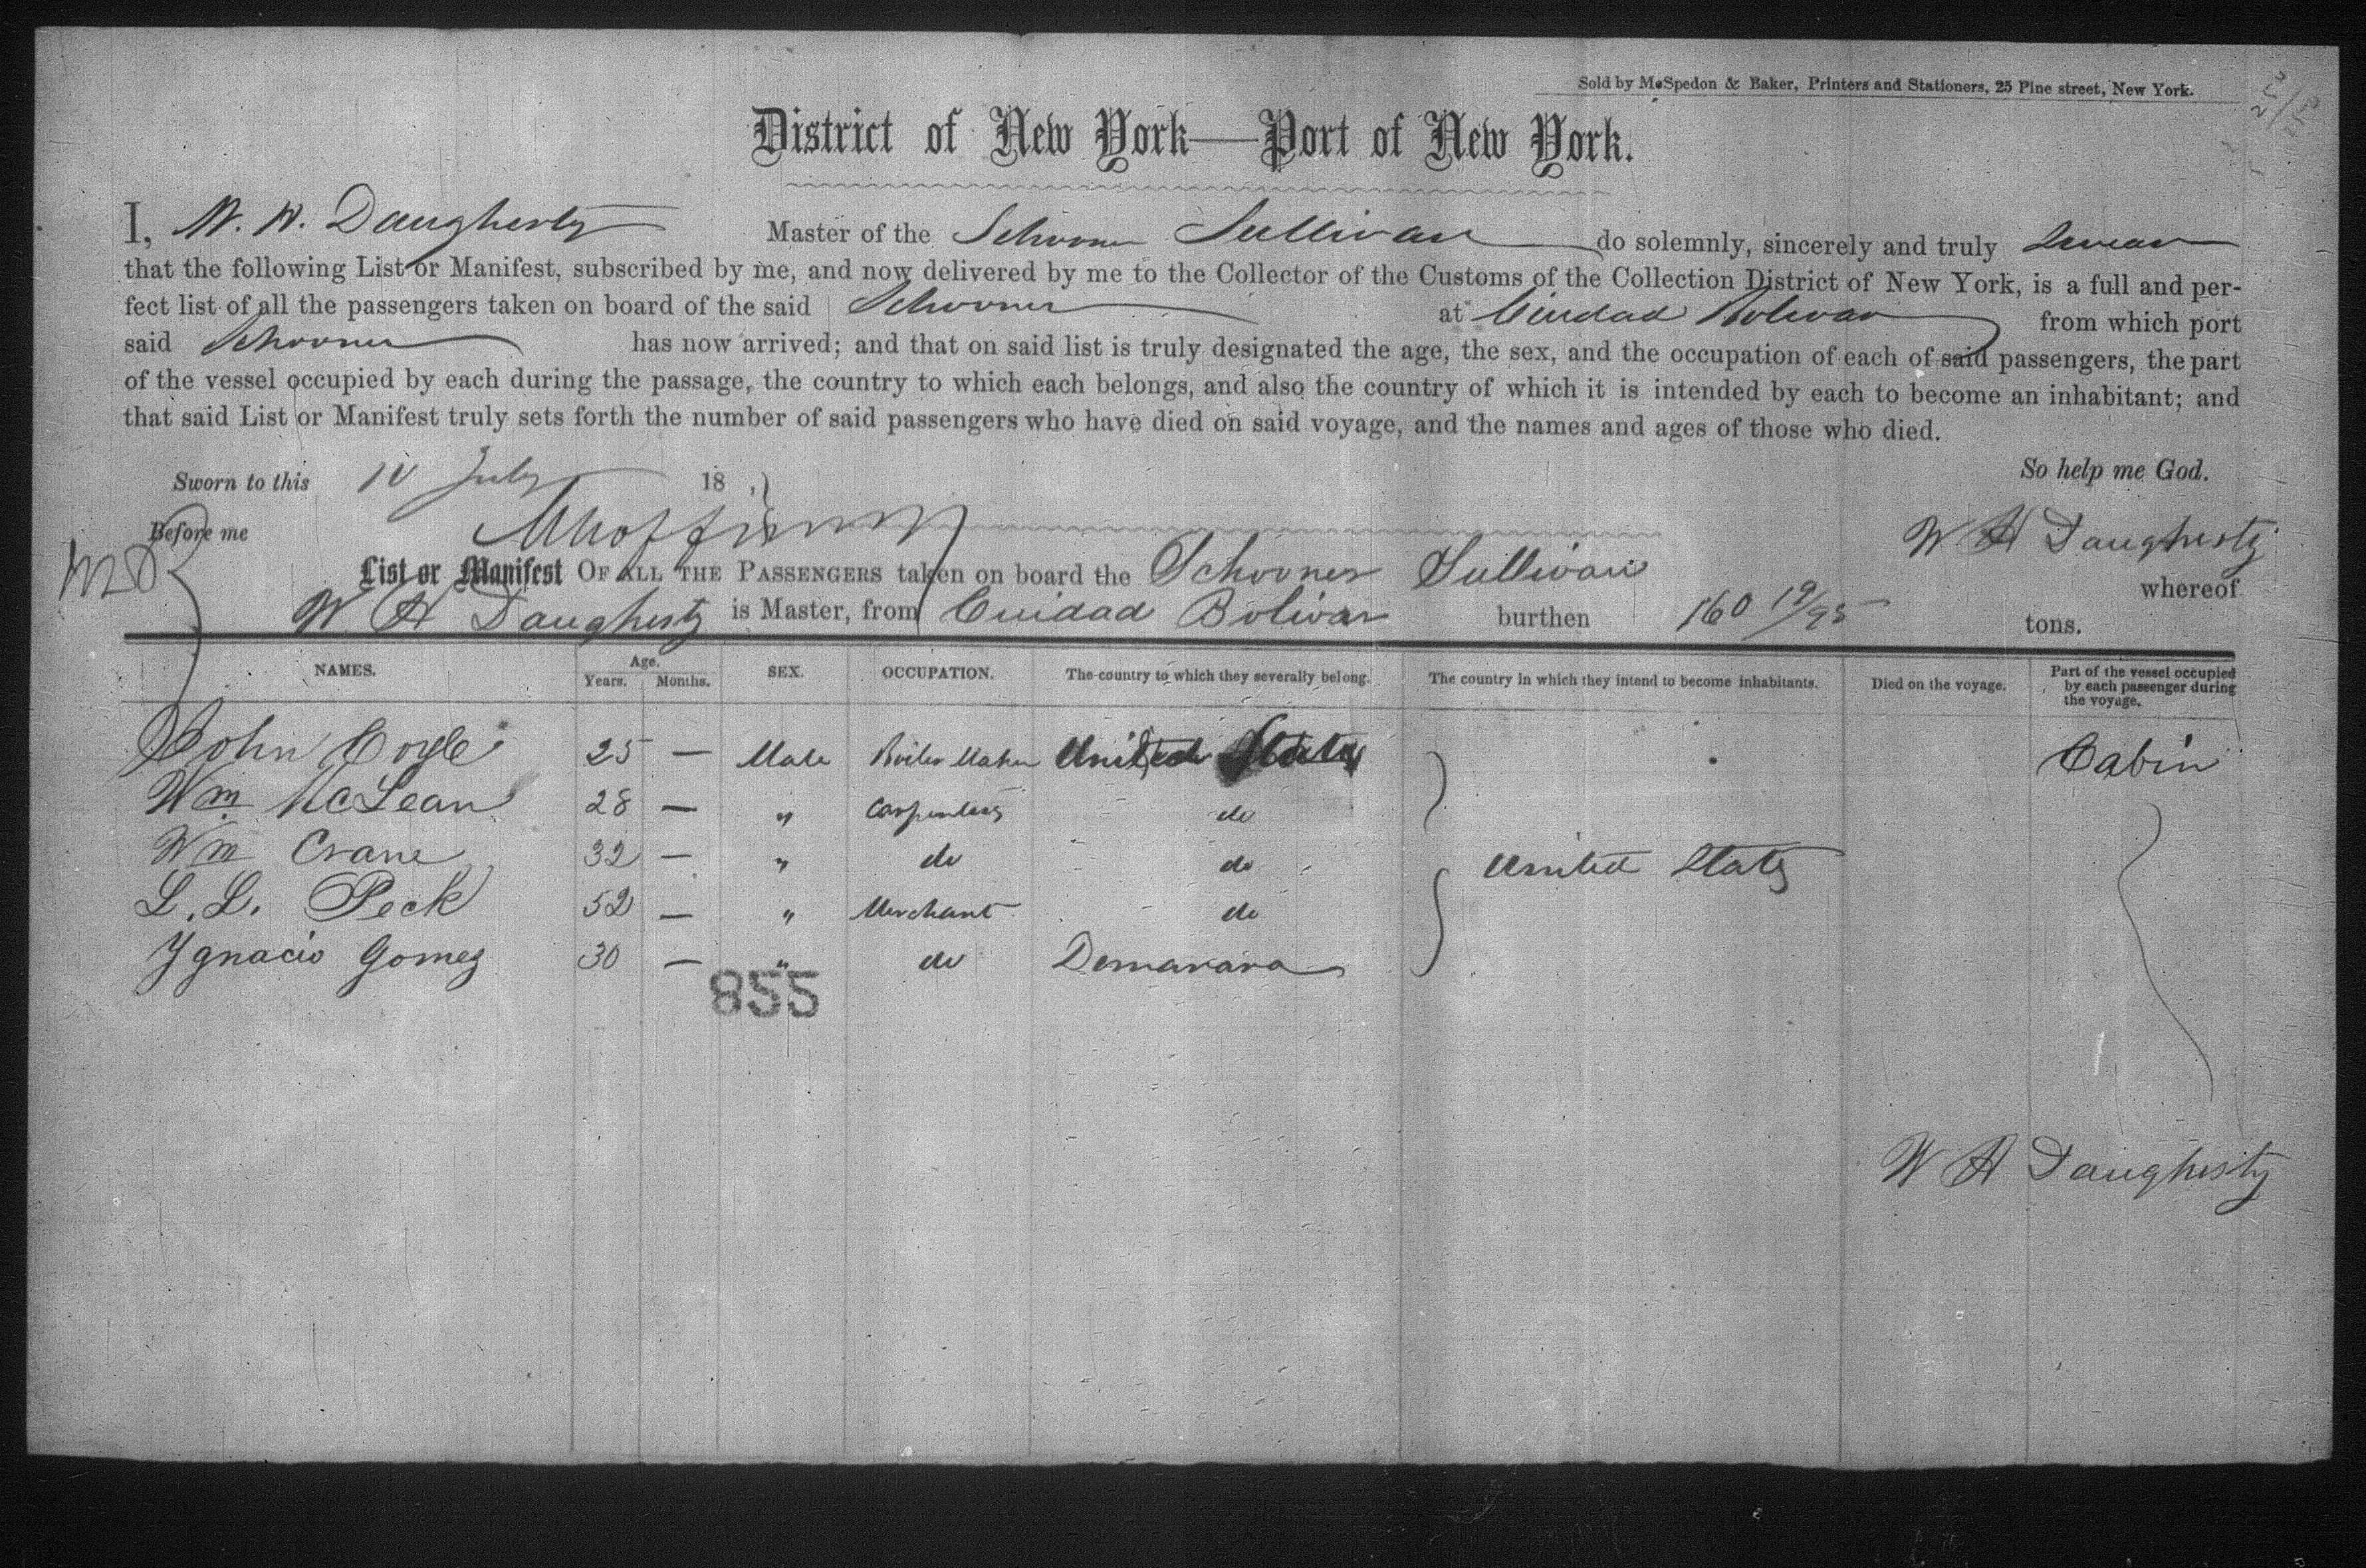 Sold by McSpedon & Baker, Printers and Stationers, 25 Pine street, New York.
District of New York—Port of New York.
I, W. H. Daugherty Master of the Schooner Sullivan do solemnly, sincerely and truly Swear
that the following List or Manifest, subscribed by me, and now delivered by me to the Collector of the Customs of the Collection District of New York, is a full and per-
fect list of all the passengers taken on board of the said Schooner at Ciudad Bolivar from which port
said Schooner has now arrived; and that on said list is truly designated the age, the sex, and the occupation of each of said passengers, the part
of the vessel occupied by each during the passage, the country to which each belongs, and also the country of which it is intended by each to become an inhabitant; and
that said List or Manifest truly sets forth the number of said passengers who have died on said voyage, and the names and ages of those who died.
Sworn to this July 18 So help me God.
Before me W H Daugherty
List or Manifest OF ALL THE PASSENGERS taken on board the Schooner Sullivan whereof
W H Daugherty is Master, from Cuidad Bolivar burthen 160 19/95 tons.
NAMES. Age. Years. Months. SEX. OCCUPATION. The country to which they severally belong. The country in which they intend to become inhabitants. Died on the voyage. Part of the vessel occupied by each passenger during the voyage.
John Coyle 25 — Male Boiler Maker United States Cabin
Wm McLean 28 — " Carpenters do
Wm Crane 32 — " do do United States
L. L. Peck 52 — " Merchant do
Ygnacio Gomez 30 — " do Demarara
855
W H Daugherty